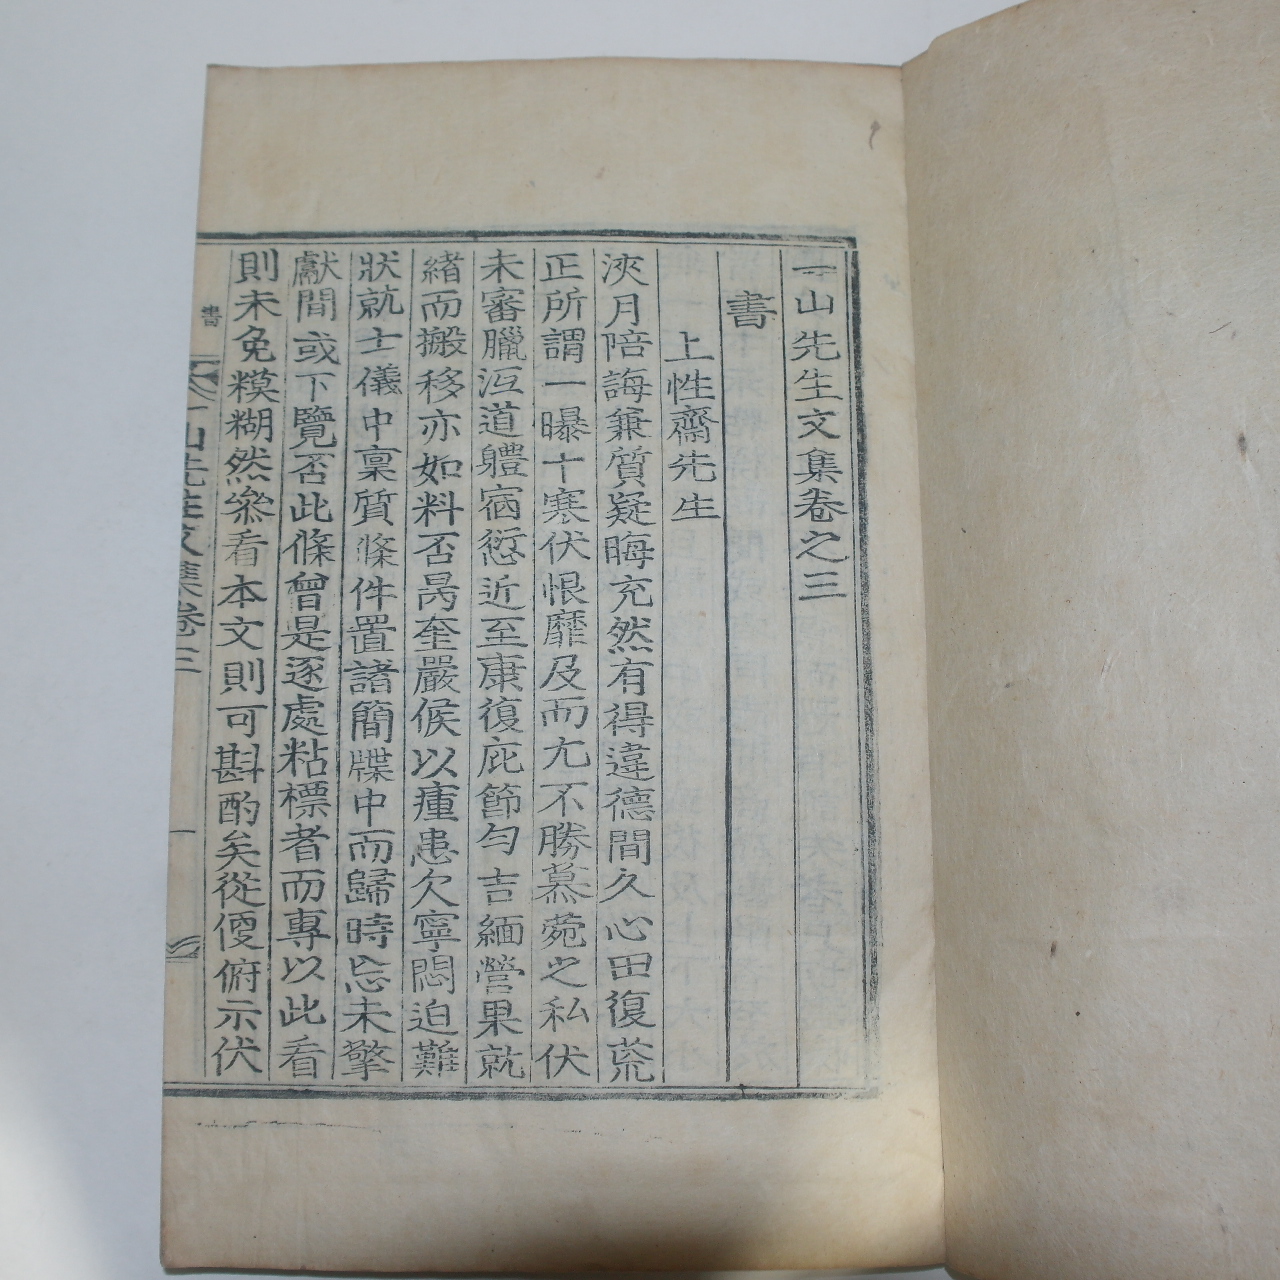 一山先生文集卷之三
書
上性齋先生
浹月陪誨兼質疑晦充然有得違德間久心田復荒
正所謂一曝十寒伏恨靡及而尤不勝慕菀之私伏
未審臘沍道軆宿愆近至康復庇節勻吉緬營果就
緖而搬移亦如料否曷奎嚴候以瘇患欠寧悶迫難
狀就士儀中稟質條件置諸簡牒中而歸時忘未擎
獻間或下覽否此條曾是逐處粘標者而專以此看
則未免糢糊然參看本文則可斟酌矣從便俯示伏
書
一山先生文集卷三
一